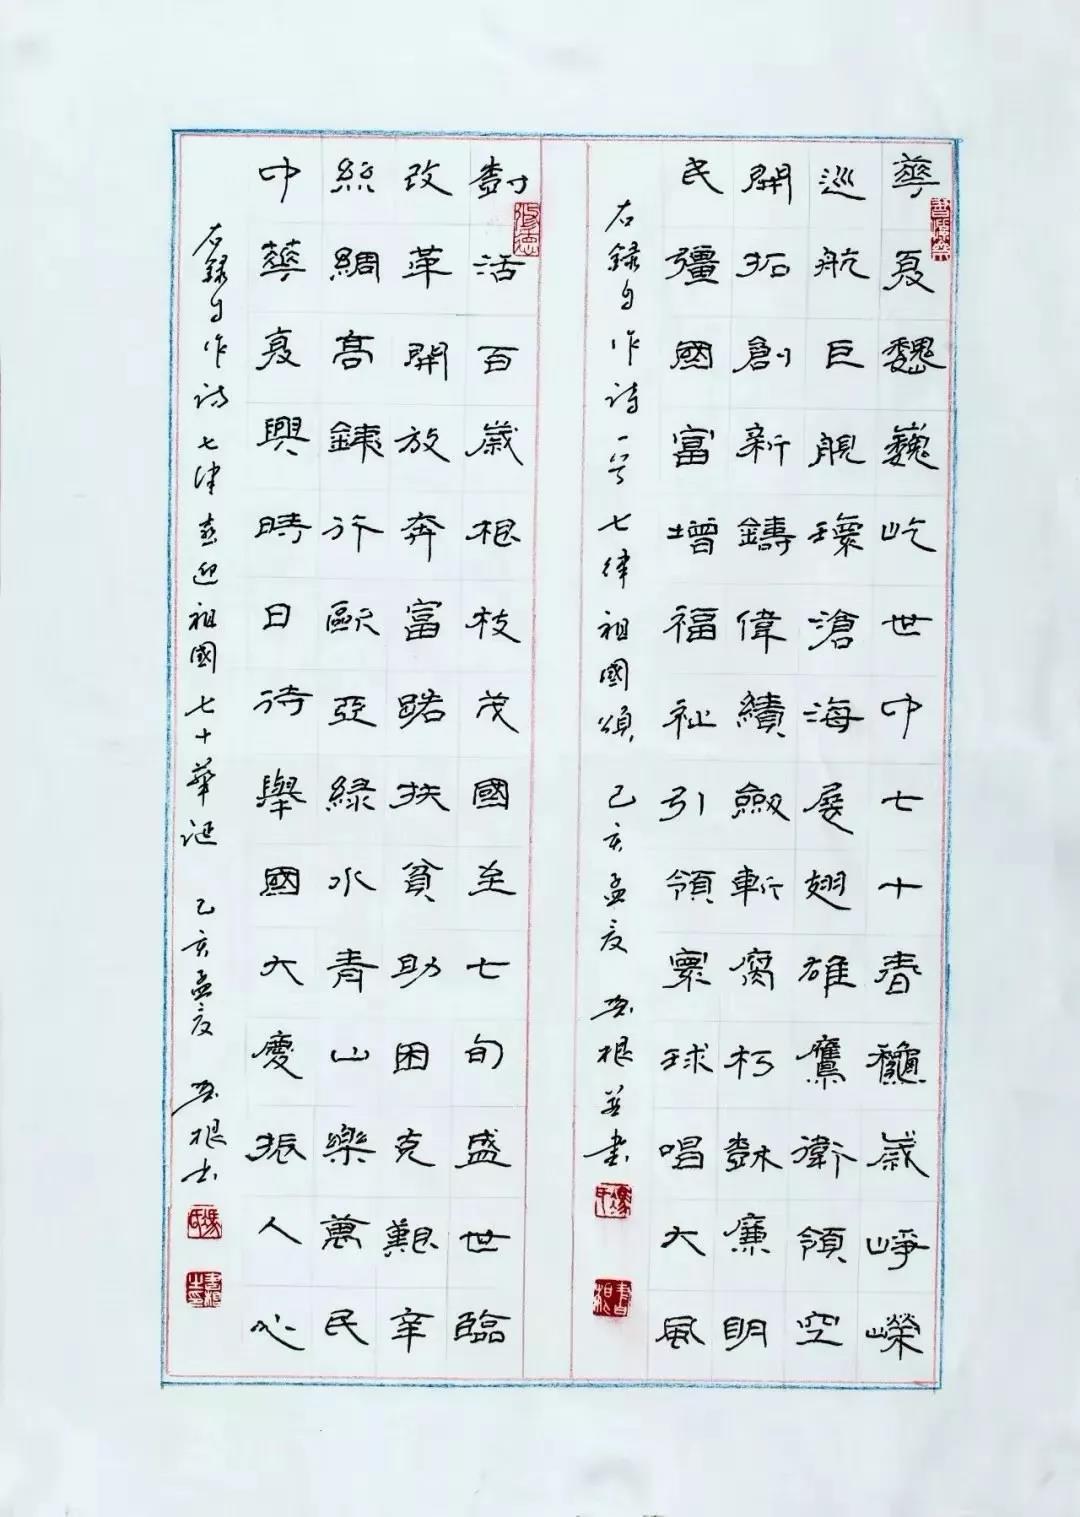 華夏巍巍屹世中七十春龝崴崢嶸
巡航巨舰環滄海展翅雄鷹衛領空
開拓創新鑄偉績劍斬腐朽龢廉明
民彊國富增福祉引領寰球唱大風
右録自作詩一首七律祖國頌 己亥孟夏 根並書
樹活百歲根枝茂國至七旬盛世臨
改革開放奔富路扶貧助困克艱辛
絲綢高鉄行歐亞綠水青山樂萬民
中華夏興時日待舉國大慶振人心
右録自作詩七律喜迎祖國七十華诞 己亥孟夏 根书